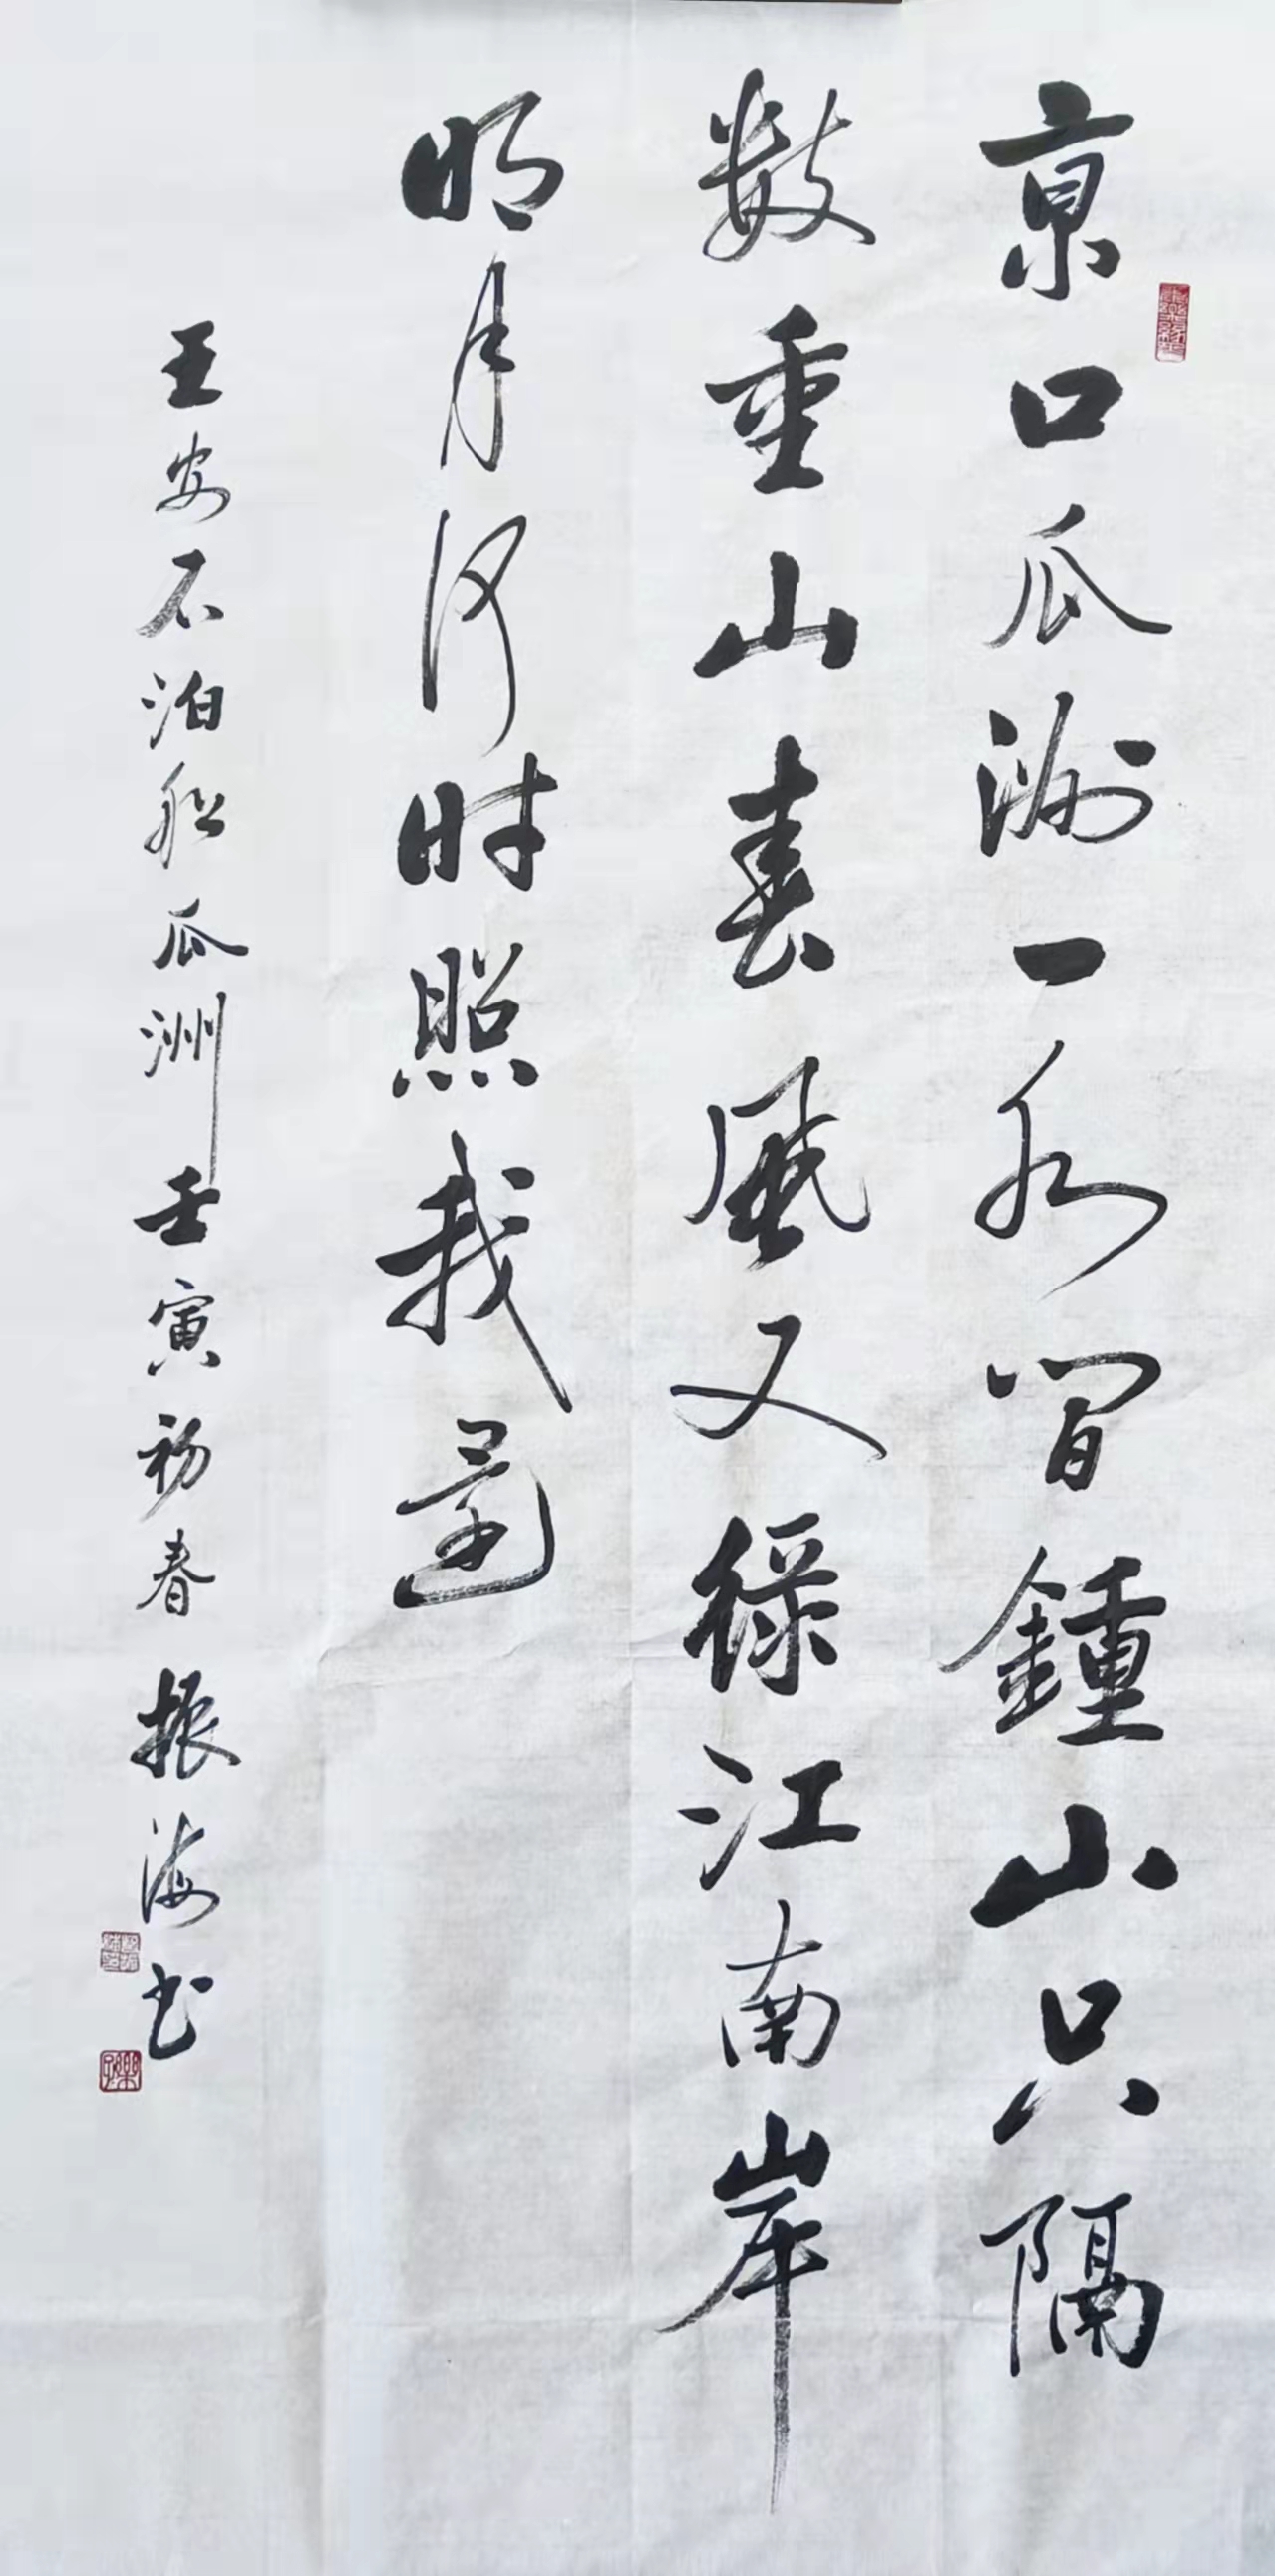 京口瓜洲一水间鍾山只隔
数重山春風又綠江南岸
明月何时照我還
王安石泊船瓜洲壬寅初春振海书